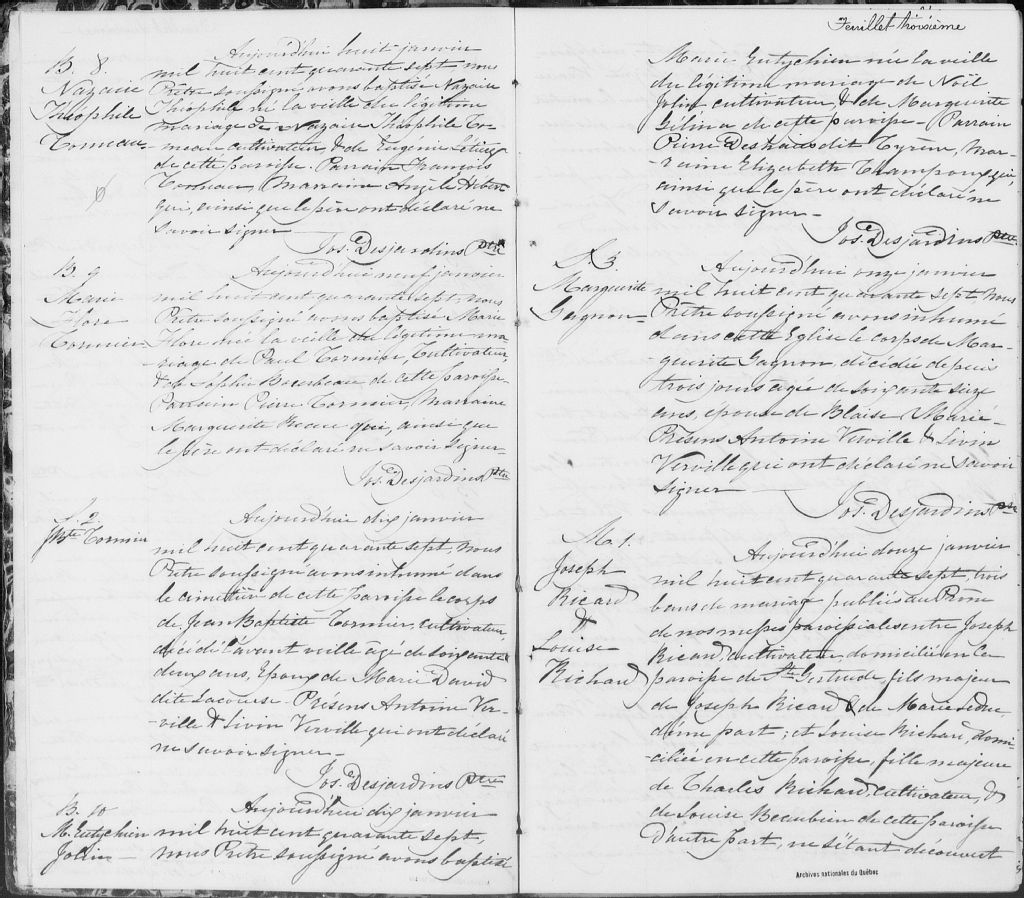 B. 8.
Nazaire
Théophile
Tormeau
Aujourd'hui huit janvier
mil huit cent quarante sept nous
Prêtre soussigné avons baptisé Nazaire
Théophile né la veille du légitime
mariage de Nazaire Théophile Tor-
meau cultivateur, & de Eugenie
de cette paroisse. Parrain François
Tormeau, Marraine Angèle Hebert
qui, ainsi que le père ont déclaré ne
savoir signer—
Jos. Desjardins Ptre
B. 9
Marie
Flore
Tormier
Aujourd'hui neuf janvier
mil huit cent quarante sept, nous
Prêtre soussigné avons baptisé Marie
Flore née la veille du légitime ma-
riage de Paul Tormier, Cultivateur,
& de Sophie Bourbeau de cette paroisse-
Parrain Pierre Tormier, Marraine
Marguerite qui, ainsi que
le père ont déclaré ne savoir signer-
Jos. Desjardins Ptre
S. 2
J Bte Tormier
Aujourd'hui dix janvier
mil huit cent quarante sept, nous
Prêtre soussigné avons inhumé dans
le cimetière de cette paroisse le corps
de Jean Baptiste Tormier, cultivateur
décédé l'avant veille âgé de soixante
deux ans, Epoux de Marie David
dite Lacourse. Présens Antoine Ver-
-ville & Livin Verville qui ont déclaré
ne savoir signer-
Jos. Desjardins Ptre
B. 10
M. Eutychien
Jolin—
Aujourd'hui dix janvier
mil huit cent quarante sept,
nous Prêtre soussigné avons baptisé
Feuillet troisième
Marie Eutychien née la veille
du légitime mariage de Noël
Jolin cultivateur, & de Marguerite
Gélina de cette paroisse- Parrain
Pierre dit Tyrène, Mar-
raine Elizabeth Champoux qui,
ainsi que le père ont déclaré ne
savoir signer-
Jos. Desjardins Ptre
S. 3.
Marguerite
Gagnon-
Aujourd'hui onze janvier
mil huit cent quarante sept nous
Prêtre soussigné avons inhumé
dans cette Eglise le corps de Mar-
guerite Gagnon, décédée depuis
trois jours agée de soixante seize
ans, épouse de Blaise Marié-
Présens Antoine Verville & Livin
Verville qui ont déclaré ne savoir
signer—
Jos. Desjardins Ptre
M. 1.
Joseph
Ricard
&
Louise
Richard
Aujourd'hui douze janvier
mil huit cent quarante sept, trois
bans de mariage publiés au Prône
de nos messes paroissiales entre Joseph
Ricard, cultivateur, domicilié en la
paroisse de Ste Gertrude, fils majeur
de Joseph Ricard & de Marie
d'une part; et Louise Richard, domi-
ciliée en cette paroisse, fille majeure
de Charles Richard, cultivateur, &
de Louise Beaubien de cette paroisse
D'autre part, ne s'étant découvert
Archives nationales du Québec